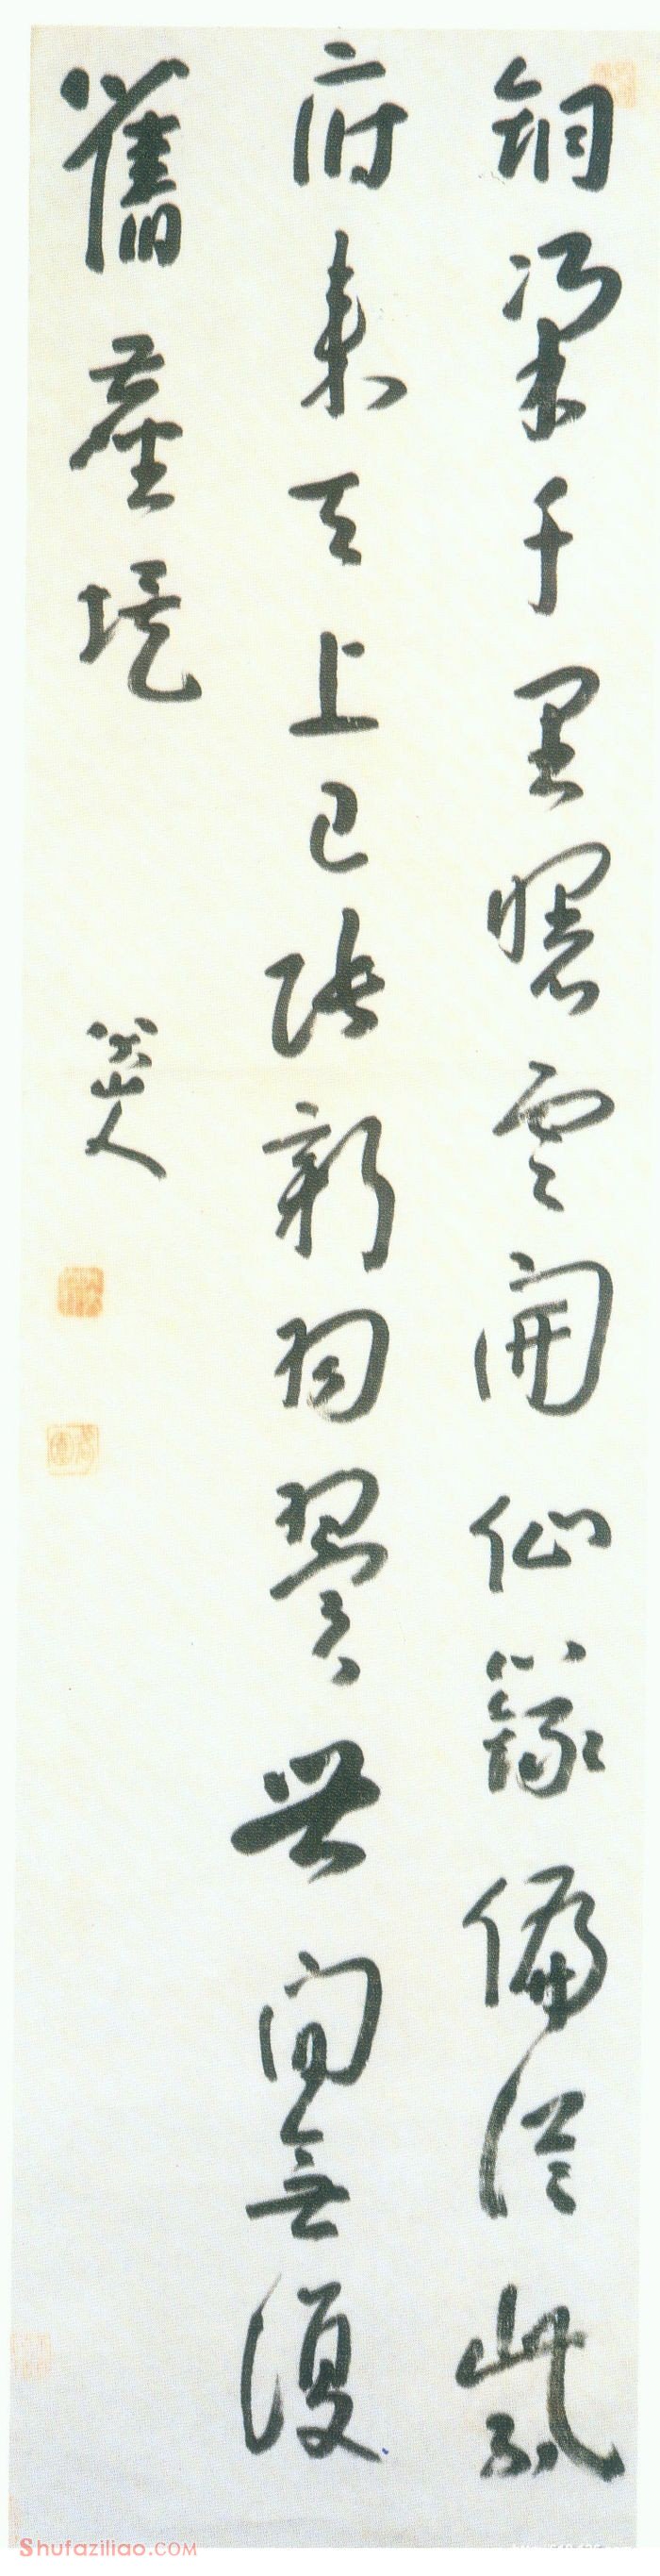 銅梁千里曙雲開仙籙偏從紫
府來天上已張新羽翼世間無復
舊塵埃
八大山人
Shufaziliao.COM